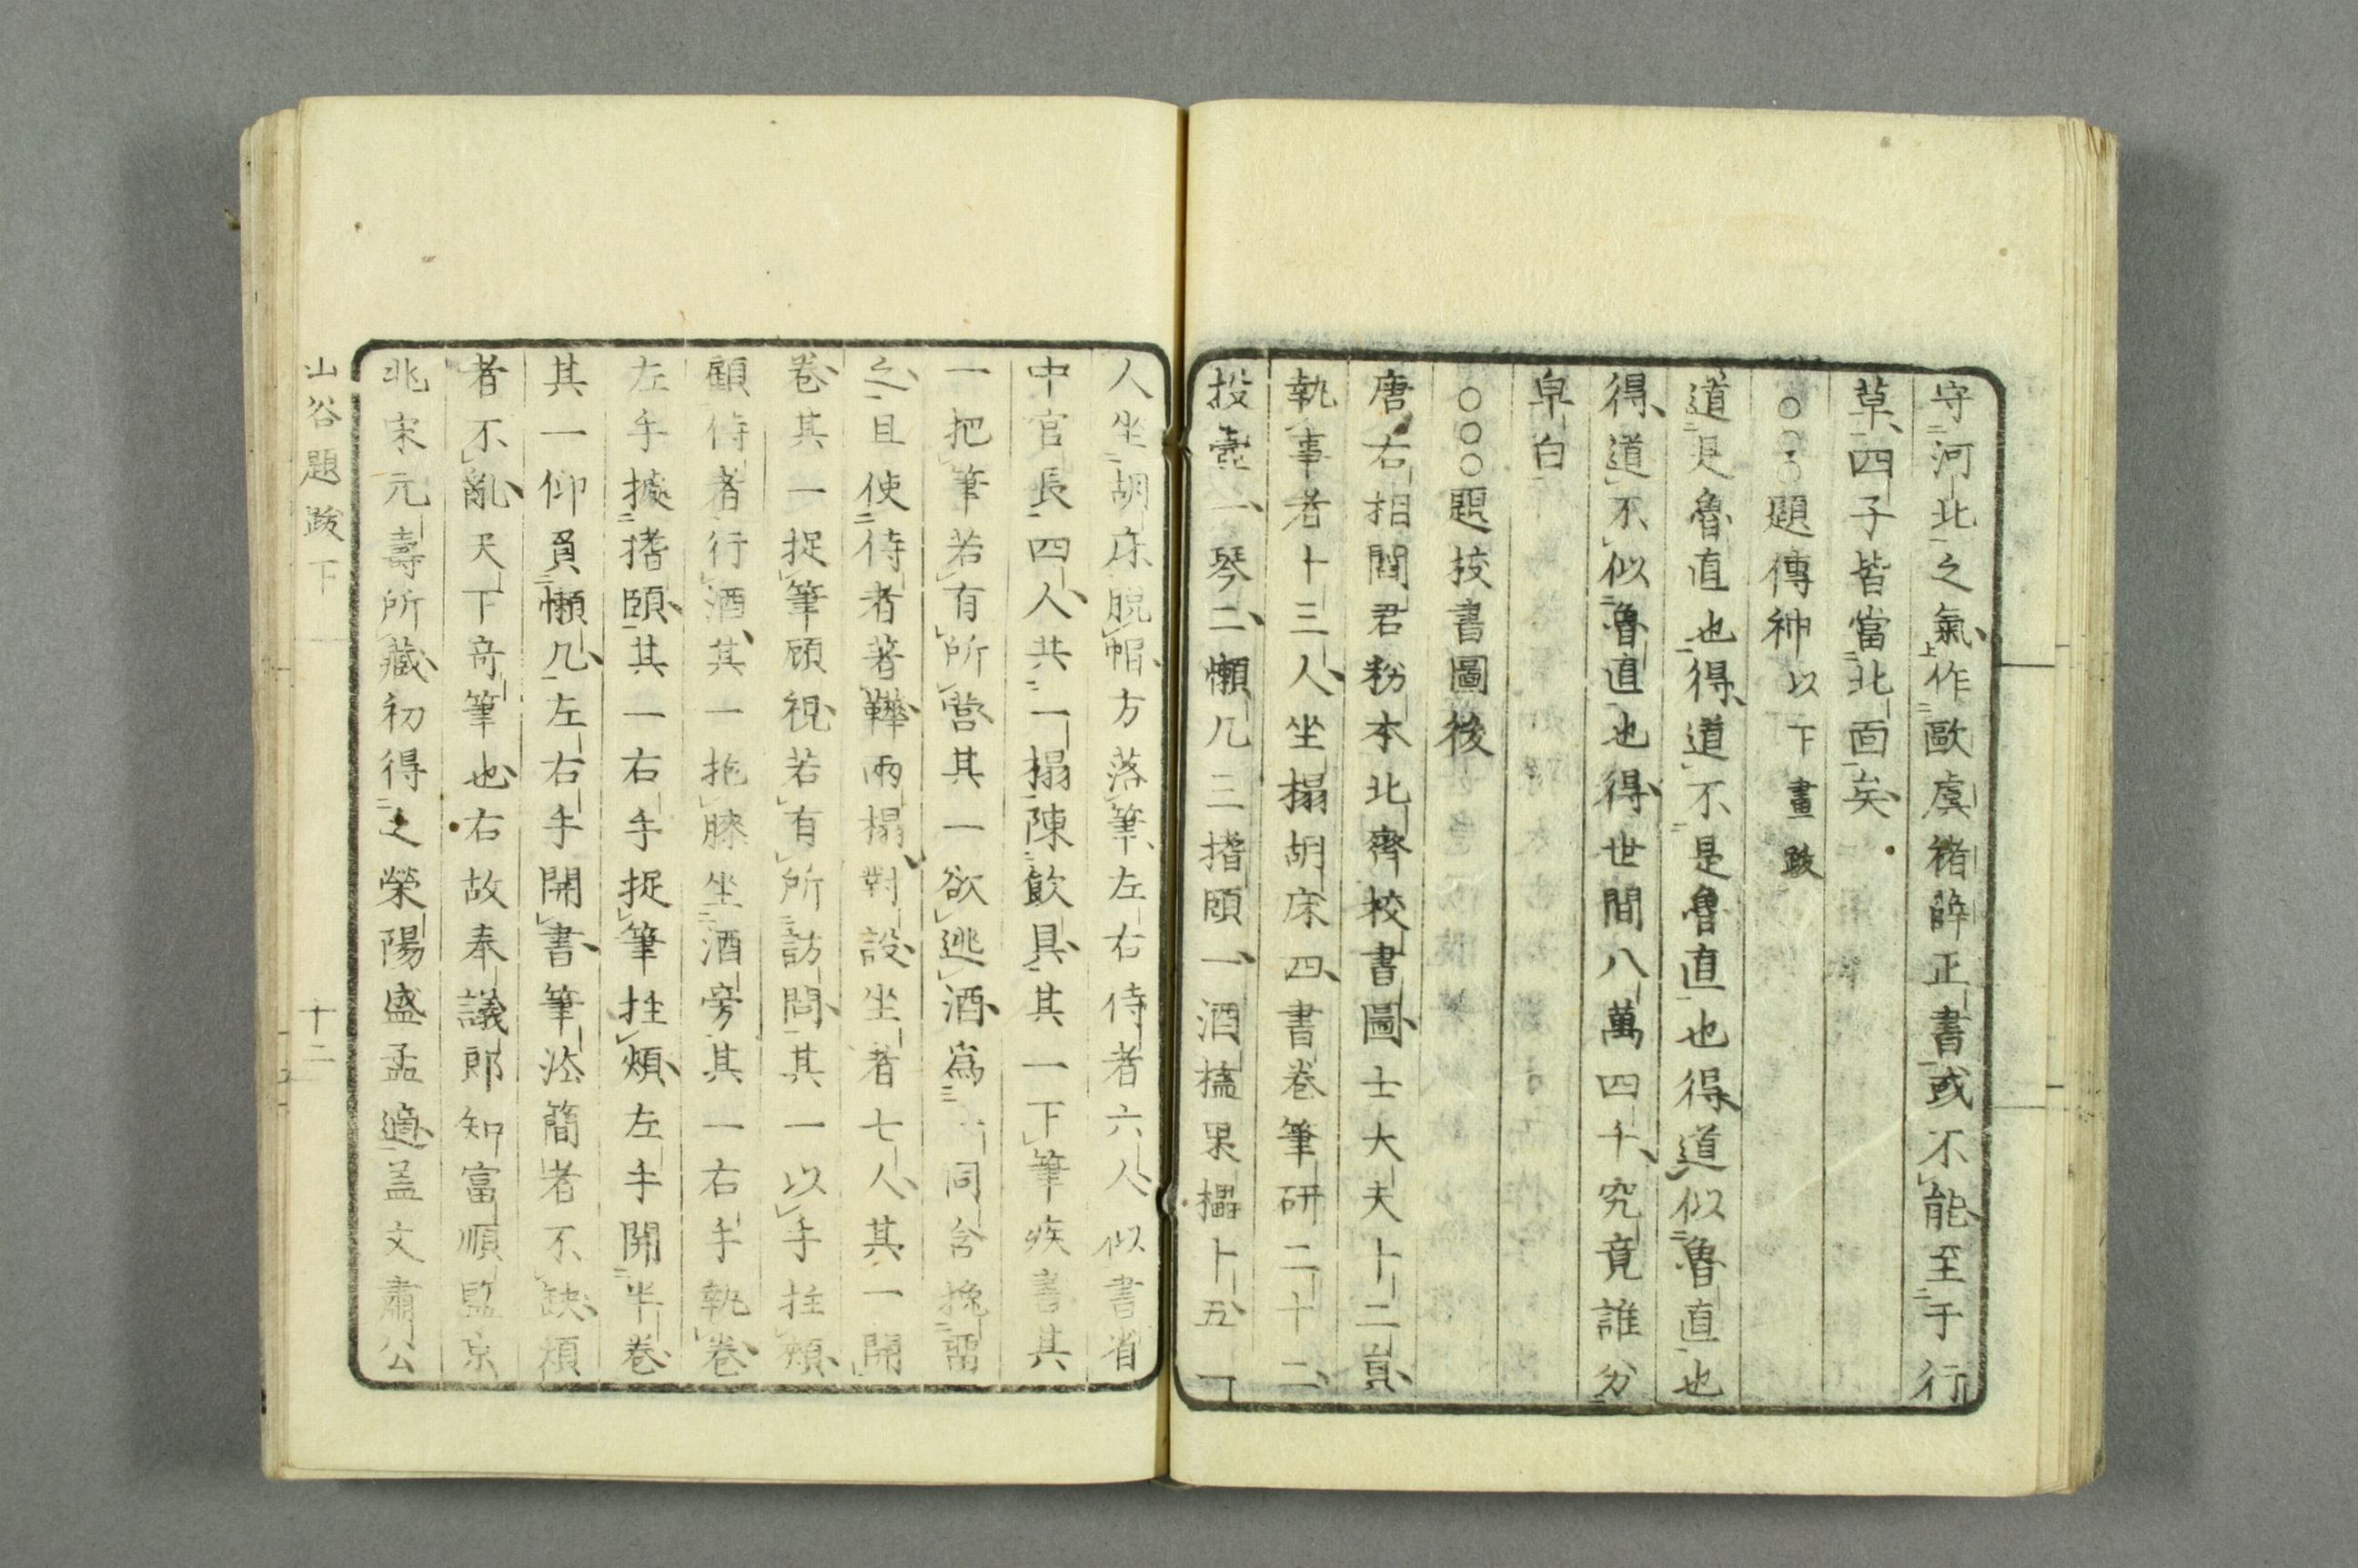 守河北之氣作歐虞褚薛正書或不能至于行
草四子皆當北面矣
○○○題傳神以下畫跋
道是魯直也得道不是魯直也得道似魯直也
得道不似魯直也得世間八萬四千究竟誰分
皁白
○○○題挍書圖後
唐右相閻君粉本北齊校書圖士大夫十二員
執事者十三人坐榻胡床四書卷筆研二十二
投壷一琴二懶几三搘頤一酒榼果櫑十五一
人坐胡床脱帽方落筆左右侍者六人似書省
中官長四人共一榻陳飲具其一下筆疾書其
一把筆若有所營其一欲逃酒爲一同舍挽留
之且使侍者著鞾兩榻對設坐者七人其一開
卷其一捉筆顧視若有所訪問其一以手拄頰
顧侍者行酒其一抱膝坐酒旁其一右手執卷
左手據搘頤其一右手捉筆拄頰左手開半卷
其一仰員懶几左右手開書筆法簡者不缺煩
者不亂天下奇筆也右故奉議郎知富順監京
兆宋元壽所藏初得之榮陽盛孟適盖文肅公
山谷題跋下
十二